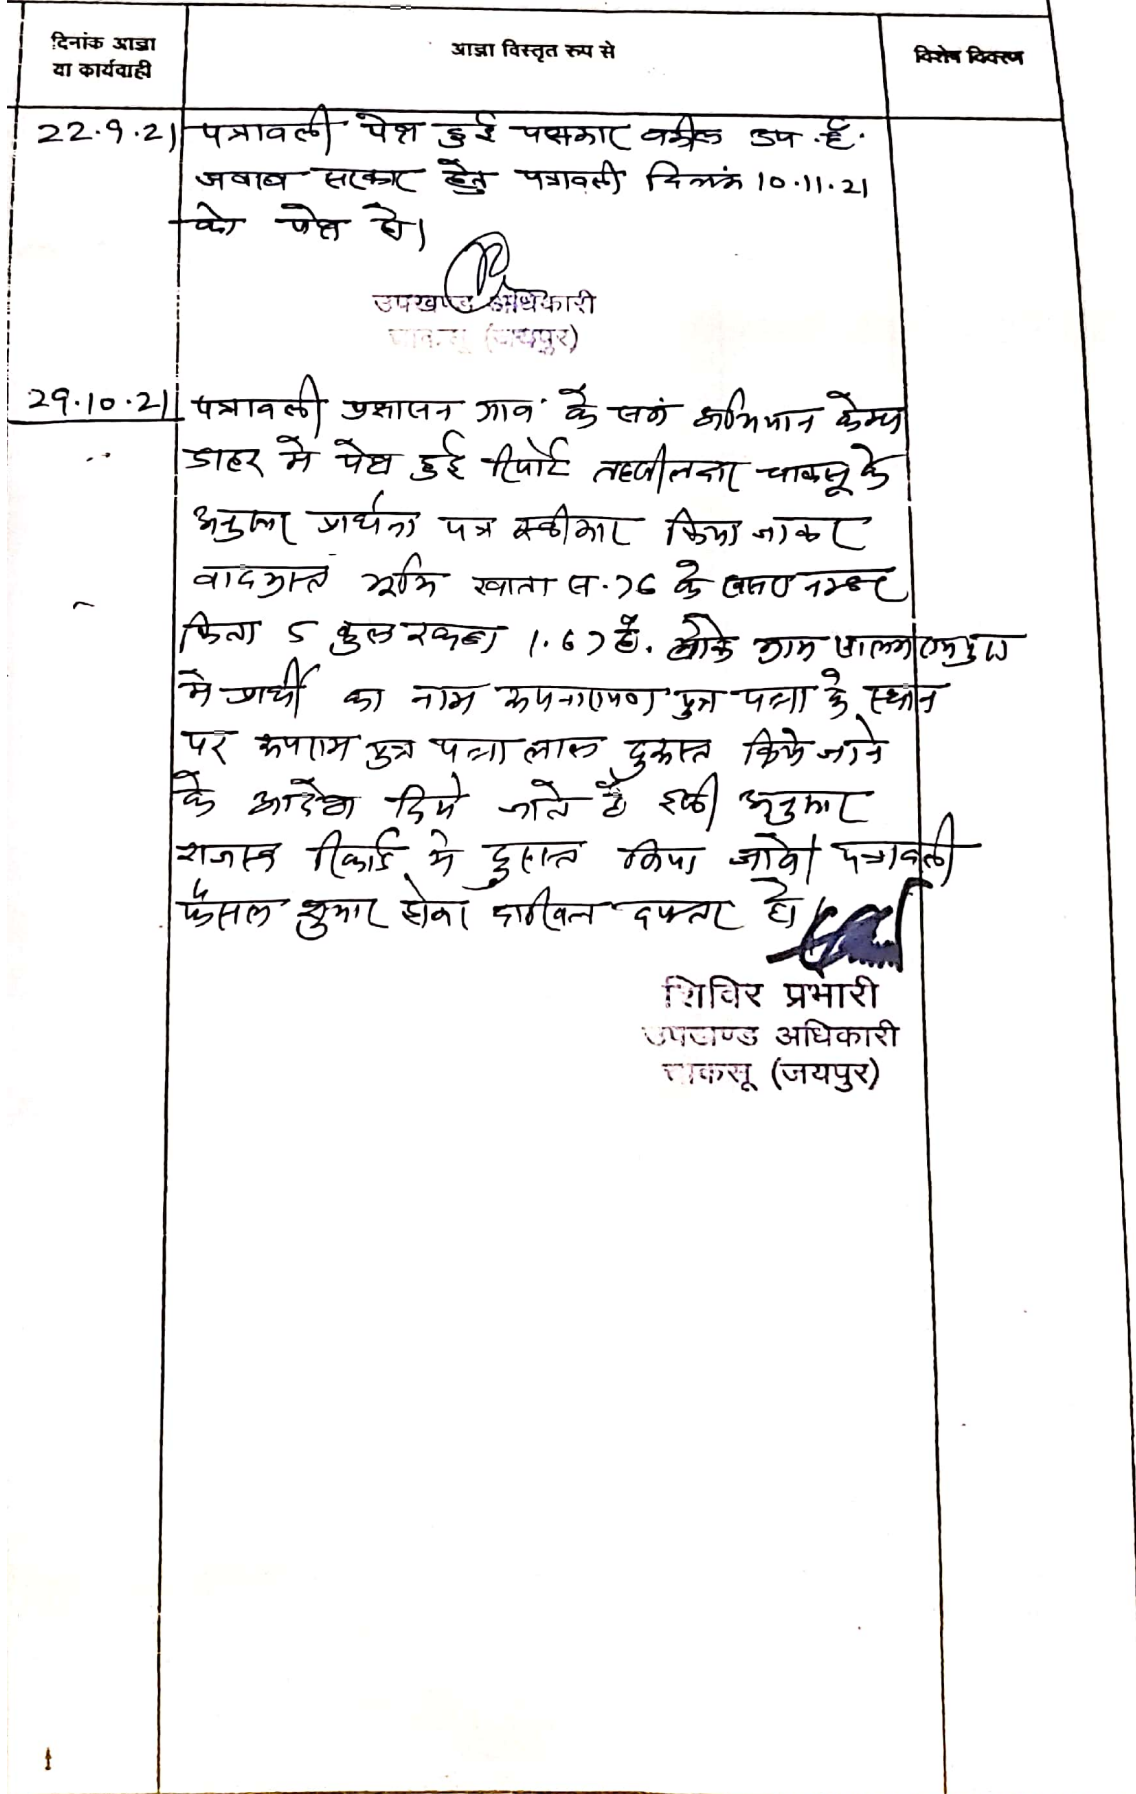 दिनांक आज्ञा
या कार्यवाही
आज्ञा विस्तृत रूप से
विशेष विवरण
22.9.21 पत्रावली पेश हुई पक्षकार वकील उप. है.
जवाब सरकार हेतु पत्रावली दिनांक 10.11.21
को पेश हो।
उपखण्ड अधिकारी
चाकसू (जयपुर)
29.10.21 पत्रावली प्रशासन गांव के संग अभियान केम्प
डाहर में पेश हुई रिपोर्ट तहसीलदार चाकसू के
अनुसार प्रार्थना पत्र स्वीकार किया जाकर
वादग्रस्त भूमि खाता स. 76 के खसरा नम्बर
किता 5 कुल रकबा 1.67 है. वाके ग्राम
में प्रार्थी का नाम रूपनारायण पुत्र पन्ना के स्थान
पर रूपराम पुत्र पन्ना लाल दुरूस्त किये जाने
के आदेश दिये जाते है इसी अनुसार
राजस्व रिकार्ड में दुरूस्त किया जावे। पत्रावली
फैसल शुमार होकर दाखिल दफ्तर हो।
शिविर प्रभारी
उपखण्ड अधिकारी
चाकसू (जयपुर)